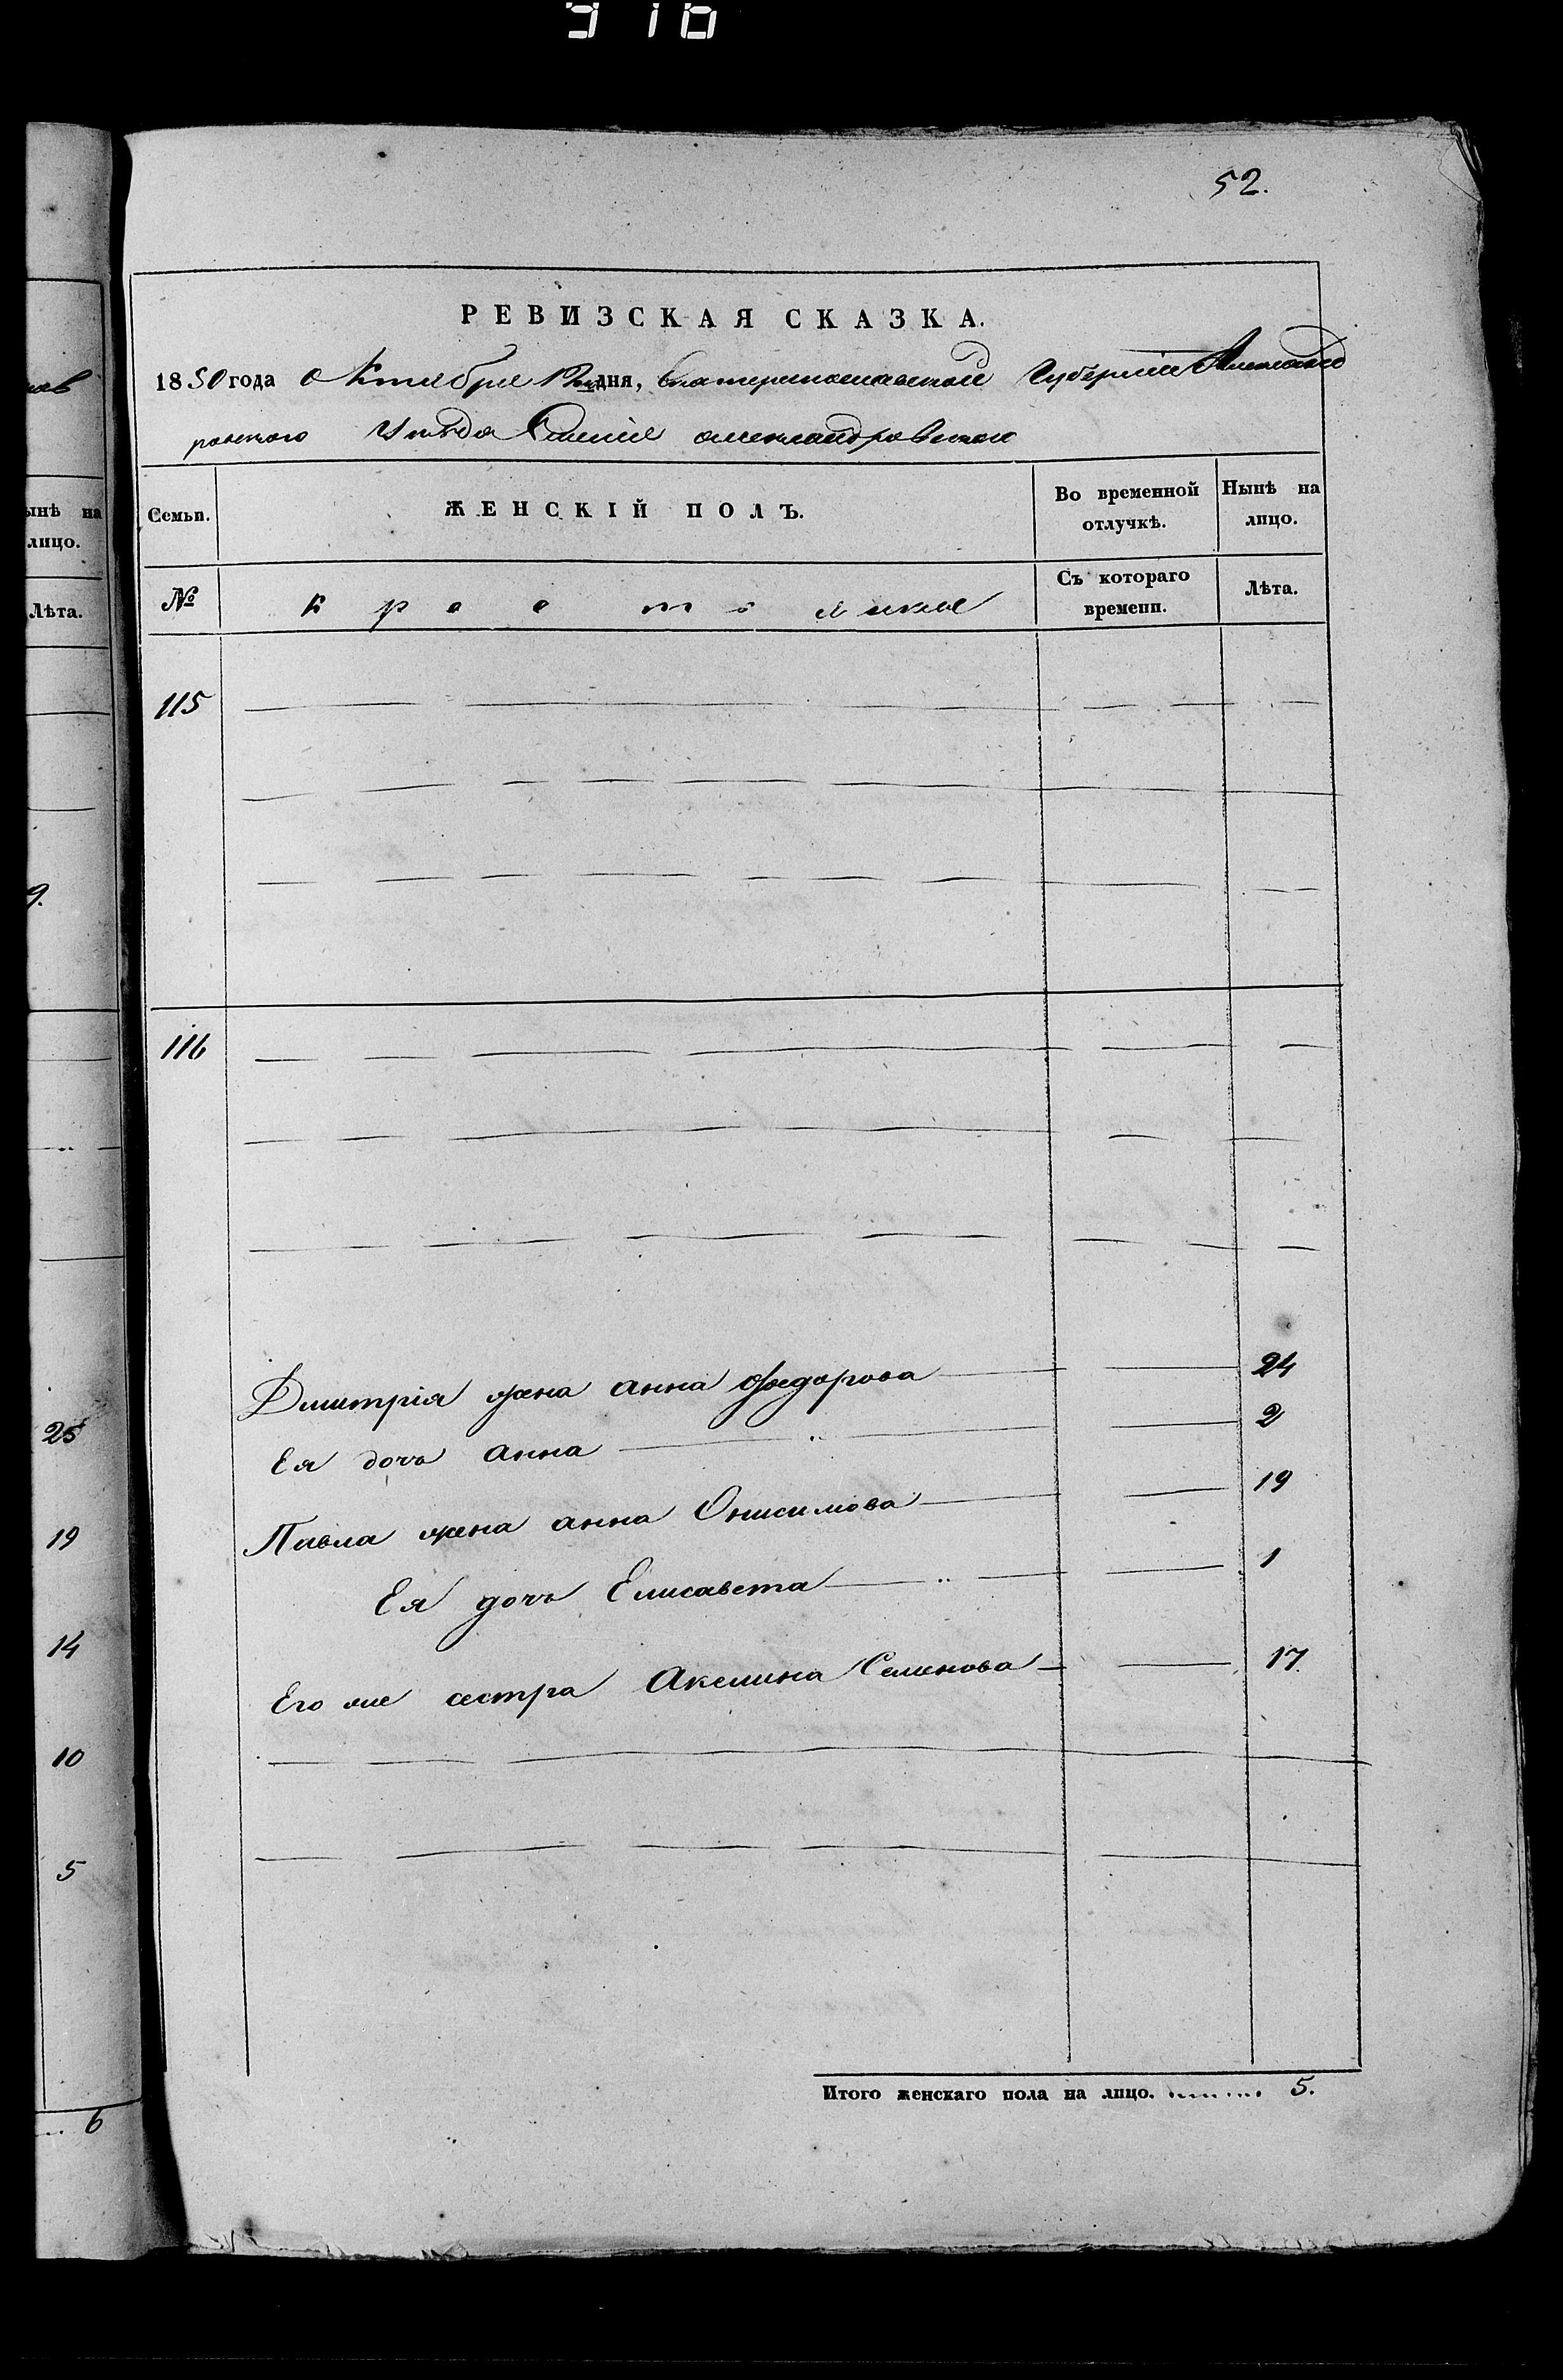 310
52.
РЕВИЗСКАЯ СКАЗКА.
1850 года Октября 12 дня, Екатеринославской Губерніи Александ
ровского Уѣзда Имѣніе александровского
Семьи. ЖЕНСКІЙ ПОЛЪ. Во временной отлучкѣ. Нынѣ на лицо.
№ крестьянъ Съ котораго времени. Лѣта.
115
116
Дмитрія жена анна Федорова 24
Ея дочь анна 2
Павла жена анна Онисимова 19
Ея дочь Елисавета 1
Его же сестра Акелина Семенова 17.
Итого женскаго пола на лицо. 5.
ынѣ на
лицо.
Лѣта.
9.
25
19
14
10
5
6